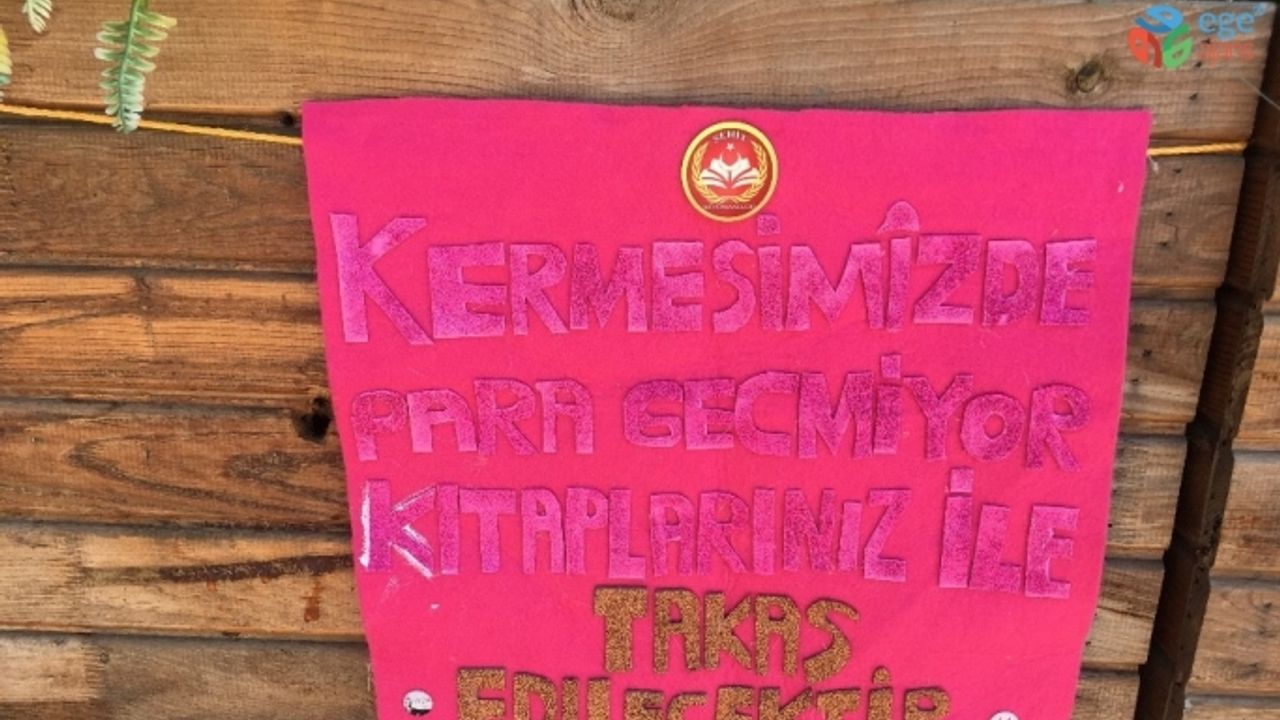 ege'
ŞEHİT
KERMESİMİZDE
PARA GECMİYOR
KITAPLARINIZ İLE
TAKAS
EDILECEKTIR